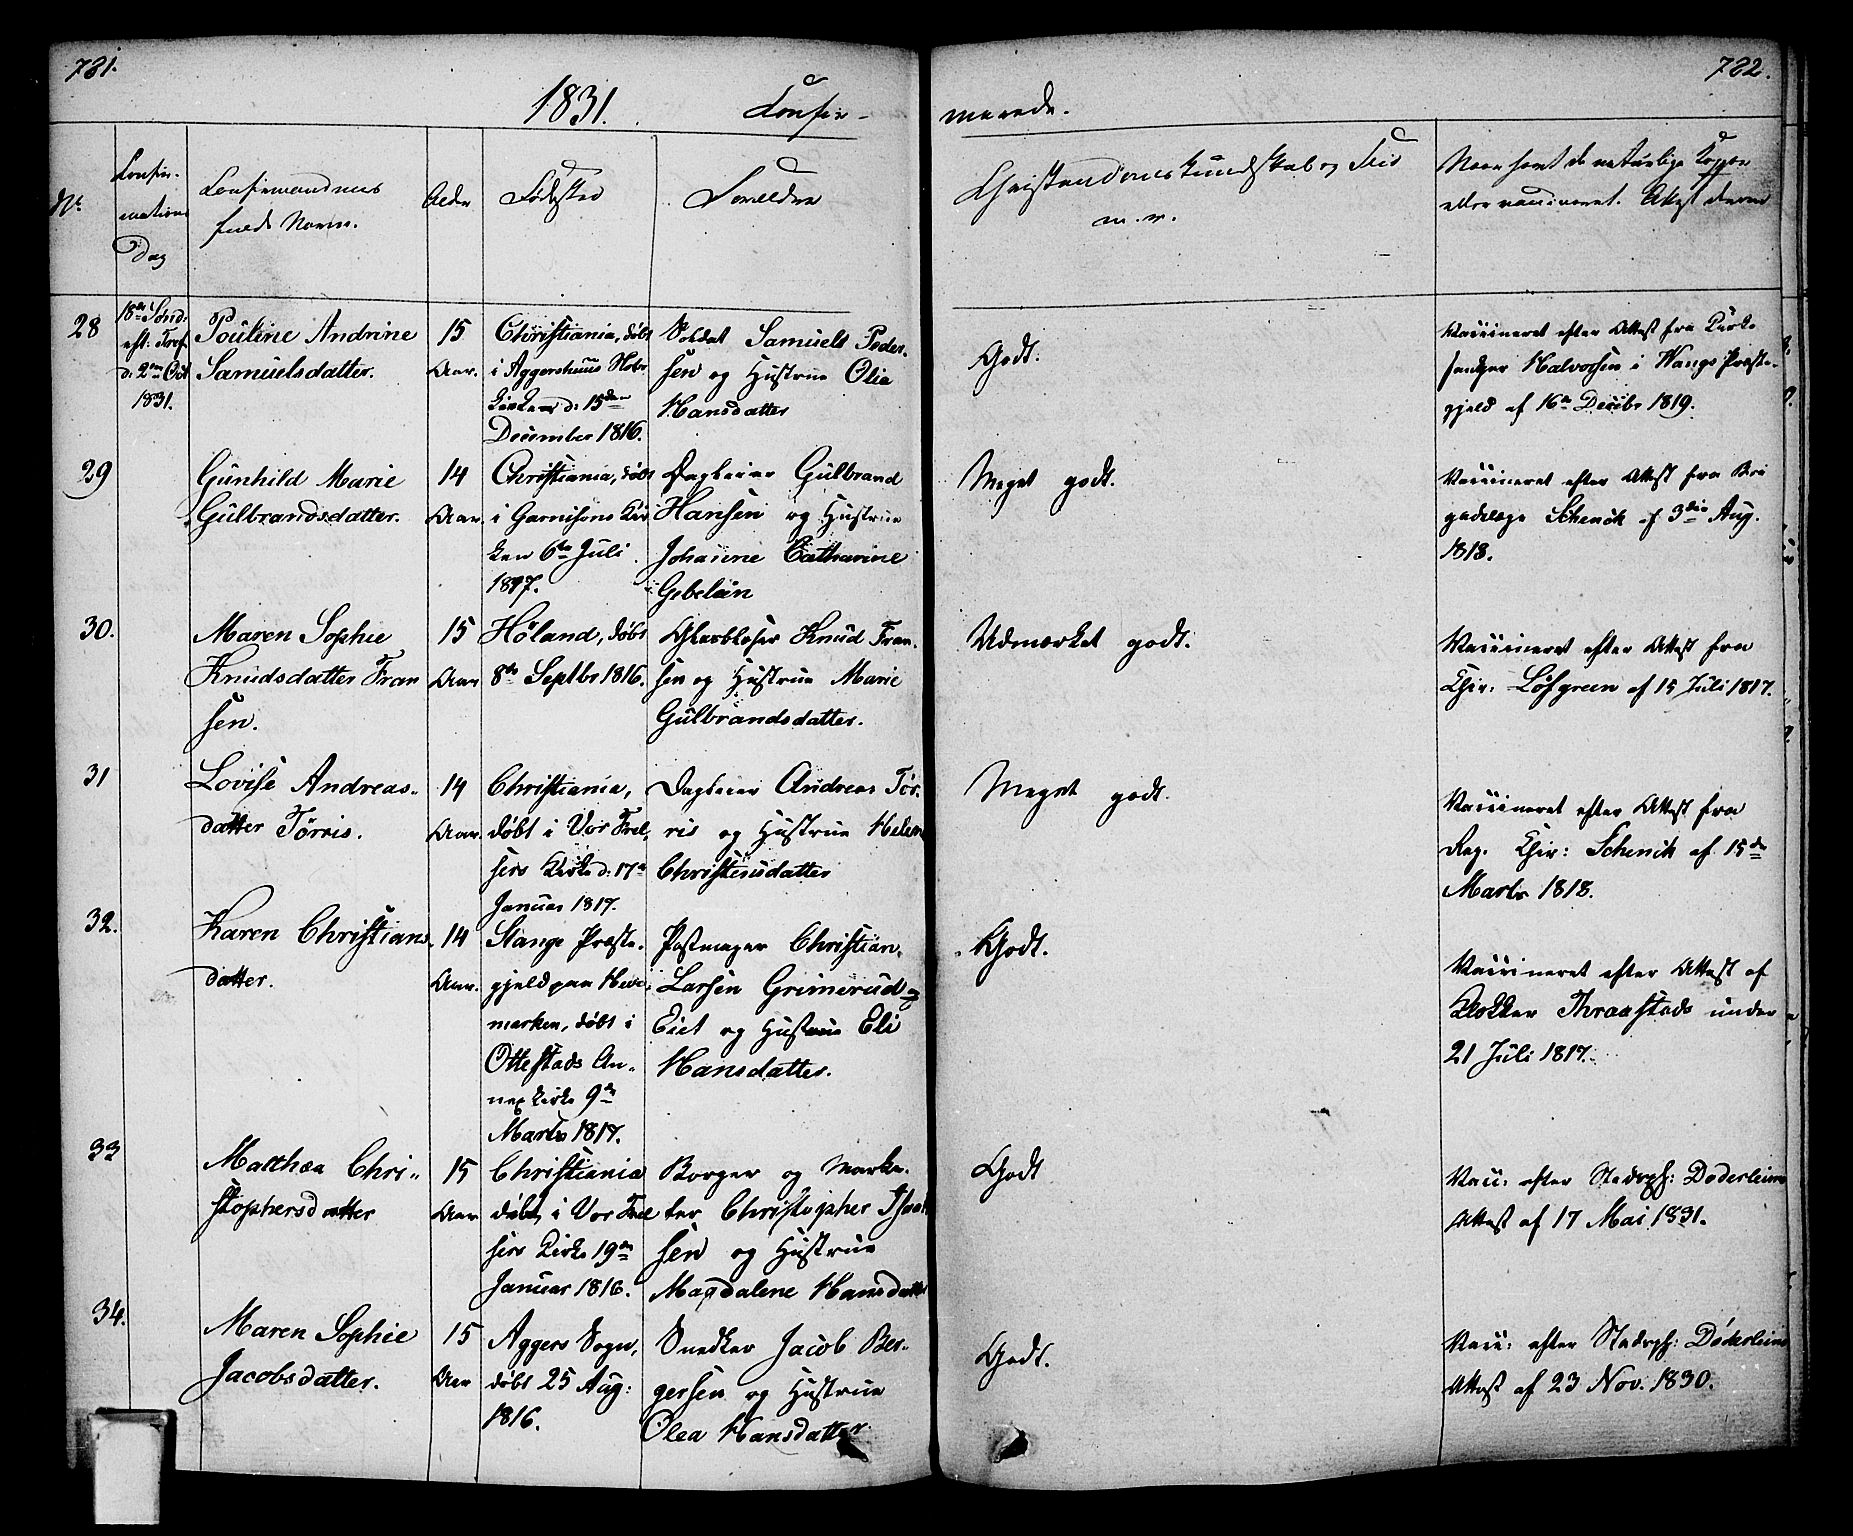 781.
782.
1831.
Confir-
merede.
Nr.
Confir-
mations
Dag
Confirmandens
fulde Navn.
Alder
Fødested
Forældre
Christendomskundskab og Flid
m. v.
Naar havt de naturlige Kopper
eller vaccineret. Attest derom
28
18de Sønd:
eft: Tref.
d: 2den Oct
1831.
Pouline Andrine
Samuelsdatter.
15
Aar.
Christiania, døbt
i Aggershuus Slots
Kirke d: 15den
December 1816.
Soldat Samuels Peder-
sen og Hustrue Olia
Hansdatter
Godt.
Vaccineret efter Attest fra Kirke
sanger Halvorsen i Wangs Præste-
gjeld af 16de Decbr 1819.
29
Gunhild Marie
Gulbrandsdatter.
14
Aar.
Christiania, døbt
i Garnisons Kir
ken 6te Juli
1817.
Dagleier Gulbrand
Hansen og Hustrue
Johanne Catharine
Gebelein
Meget godt.
Vaccineret efter Attest fra Bri
gadelæge Schenck af 3die Aug.
1818.
30.
Maren Sophie
Knudsdatter Fran
sen.
15
Aar
Höland, døbt
8de Septbr 1816.
Glasblæser Knud Fran-
sen og Hustrue Marie
Gulbrandsdatter.
Udmærket godt.
Vaccineret efter Attest fra
Chir: Löfgreen af 15 Juli 1817.
31
Lovise Andreas-
datter Tørris.
14
Aar.
Christiania,
døbt i Vor Frel,
sers Kirke d: 17de
Januar 1817.
Dagleier Andreas Tør-
ris og Hustrue Helene
Christensdatter
Meget godt.
Vaccineret efter Attest fra
Reg. Chir: Schenck af 15de
Marts 1818.
32.
Karen Christians
datter.
14
Aar.
Stange Præste-
gjeld paa Hede-
marken, døbt i
Ottestads An-
nex Kirke 9de
Marts 1817.
Pladsmand Christian
Larsen Grimerud-
Eiet og Hustrue Eli
Hansdatter.
Godt.
Vaccineret efter Attest af
Klokker Thraastads under
21 Juli 1817.
33
Matthea Chri-
stophersdatter
15
Aar
Christiania
døbt, i Vor Frel
sers Kirke 19de
Januar 1816.
Borger og Marke-
ter Christopher
sen og Hustrue
Magdalene Hansdatter
Godt
Vacc: efter Stadsph: Døderleins
Attest af 17 Mai 1831.
34.
Maren Sophie
Jacobsdatter.
15
Aar
Aggers Sogn,
døbt 25 Aug:
1816.
Snedker Jacob Ber-
gersen og Hustrue
Olea Hansdatter
Godt.
Vacc: efter Stadsph: Døderleins
Attest af 23 Nov. 1830.